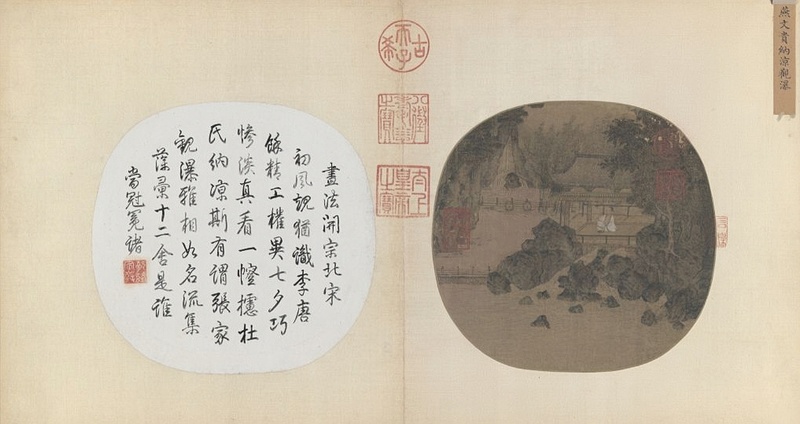 燕文貴納涼觀瀑
古希天子
八徵耄念之寶
太上皇帝之寶
畫法開宗北宋
初風規猶識李唐
餘精工權異七夕巧
慘淡真看一幀攄杜
氏納涼斯有謂張家
觀瀑雅相如名流集
藻彙十二舍是誰
當冠冕諸